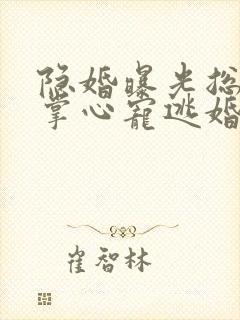 隐婚曝光总
掌心宠逃婚
崔智林